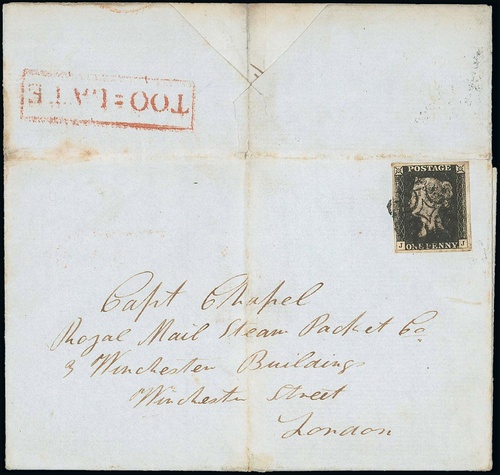 TOO=LATE
POSTAGE
J J
ONE PENNY
Capt Chapel
Royal Mail Steam Packet Co.
3 Winchester Buildings
Winchester Street
London